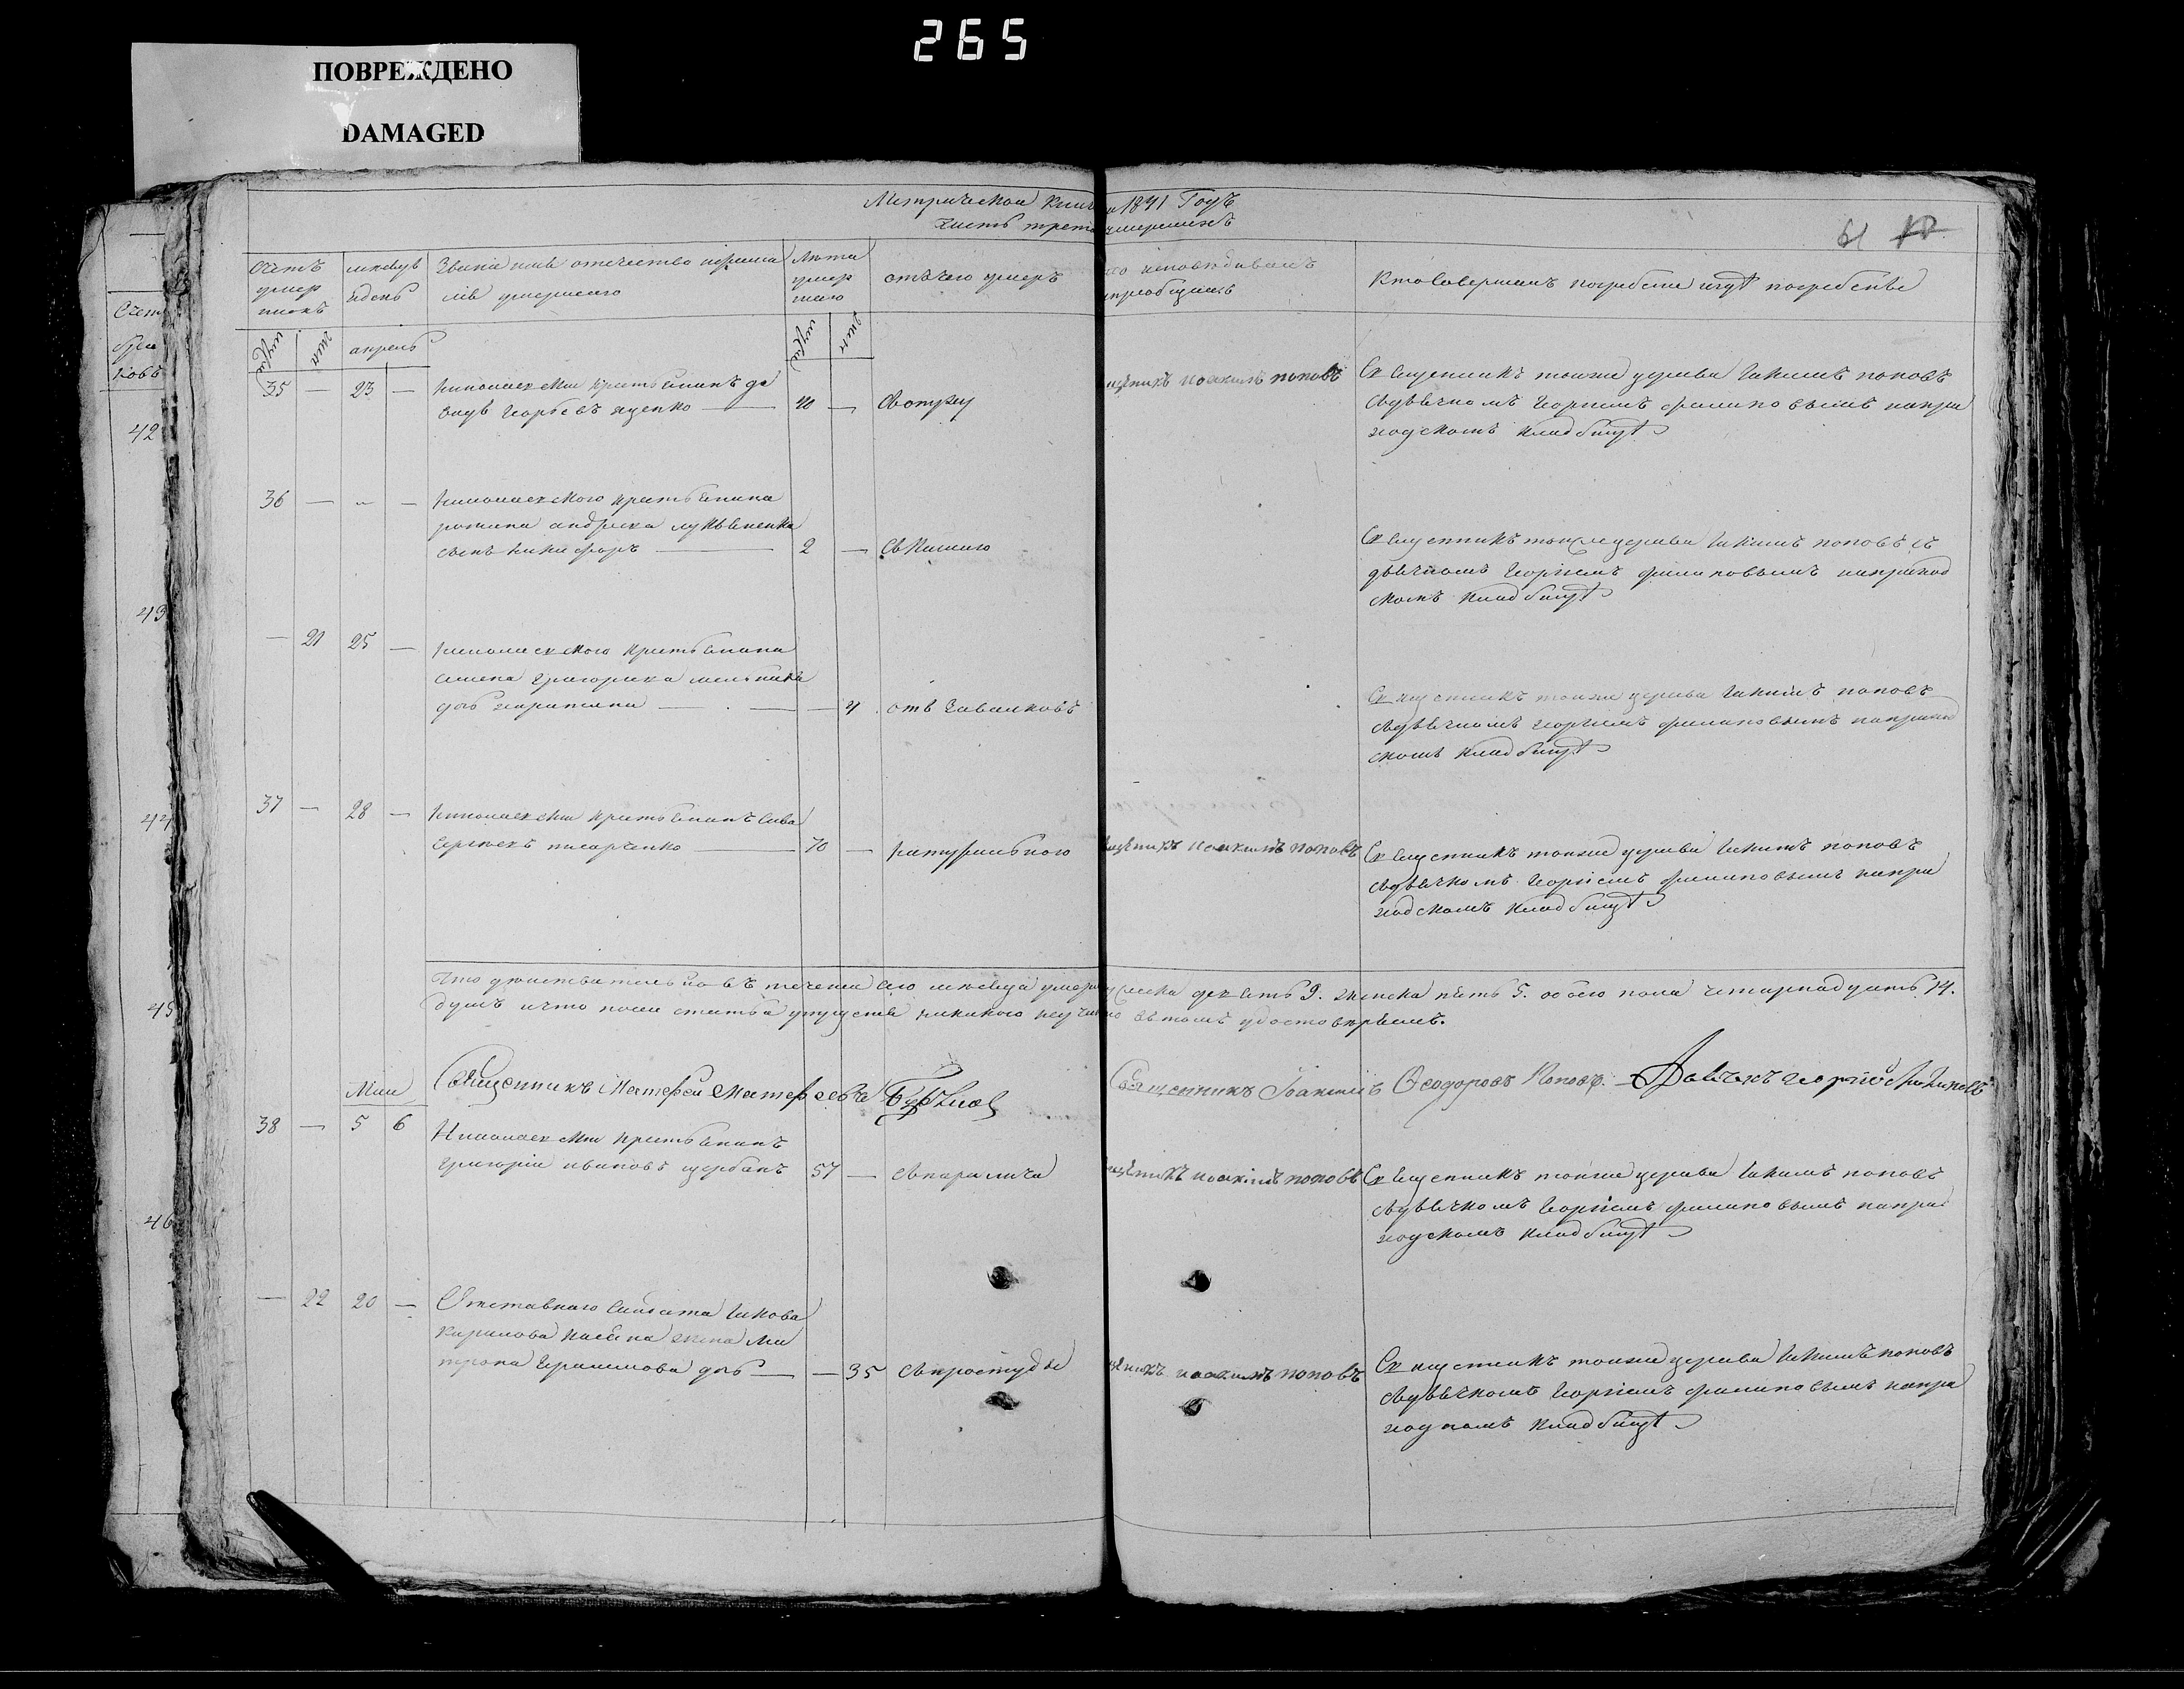 265
ПОВРЕЖДЕНО
DAMAGED
Метрической книги 1841 Годъ
Часть третья умершихъ
61
Счетъ умершихъ
месецъ и день
Звание имя отечество и фамилия умершаго
Лета умершаго
отъ чего умеръ
исповедывалъ и приобщилъ
Кто совершалъ погребение и где погребены
апрель
35 — 23 —
николаевский крестьянинъ да
видъ георгиевъ яценко — 40 —
священникъ иоакимъ поповъ
Священникъ тоиже церкви иакимъ поповъ
сдьячкомъ георгиемъ филиповымъ напри
ходскомъ кладбище
36 — „ —
николаевского крестьянина
сынъ никифоръ — 2 —
Священникъ тоиже церкви иакимъ поповъ съ
дьячкомъ георгиемъ филиповымъ наприход
скомъ кладбище
— 21 25 —
николаевского крестьянина
дочь — 4
Священникъ тоиже церкви иакимъ поповъ
сдьячкомъ георгиемъ филиповымъ наприход
скомъ кладбище
37 — 28 —
николаевский крестьянинъ сава
писаренко — 70 —
натурального
священникъ иоакимъ поповъ
Священникъ тоиже церкви иакимъ поповъ
сдьячкомъ георгиемъ филиповымъ напри
ходскомъ кладбище
Что действительно въ течении сего месяца умерло мужеска девять 9. женска пять 5. обоего пола четырнадцать 14.
душъ и что после статьи упущения никакого неучинено вътомъ удостоверяемъ.
Священникъ Матфей Матфеевъ
Священникъ Иоакимъ Феодоровъ Поповъ. Дьячекъ георгий Филиповъ
Маи
38 — 5 6
Николаевский крестьянинъ
григорий ивановъ щербанъ 57 — спаралича
священникъ иоакимъ поповъ
Священникъ тоиже церкви иакимъ поповъ
сдьячкомъ георгиемъ филиповымъ напри
ходскомъ кладбище
— 22 20 —
Отставнаго салдата иакова
кирилова жена
дочь — — 35 спростуды
священникъ иоакимъ поповъ
Священникъ тоиже церкви иакимъ поповъ
сдьячкомъ георгиемъ филиповымъ напри
ходскомъ кладбище
42
43
44
45
46